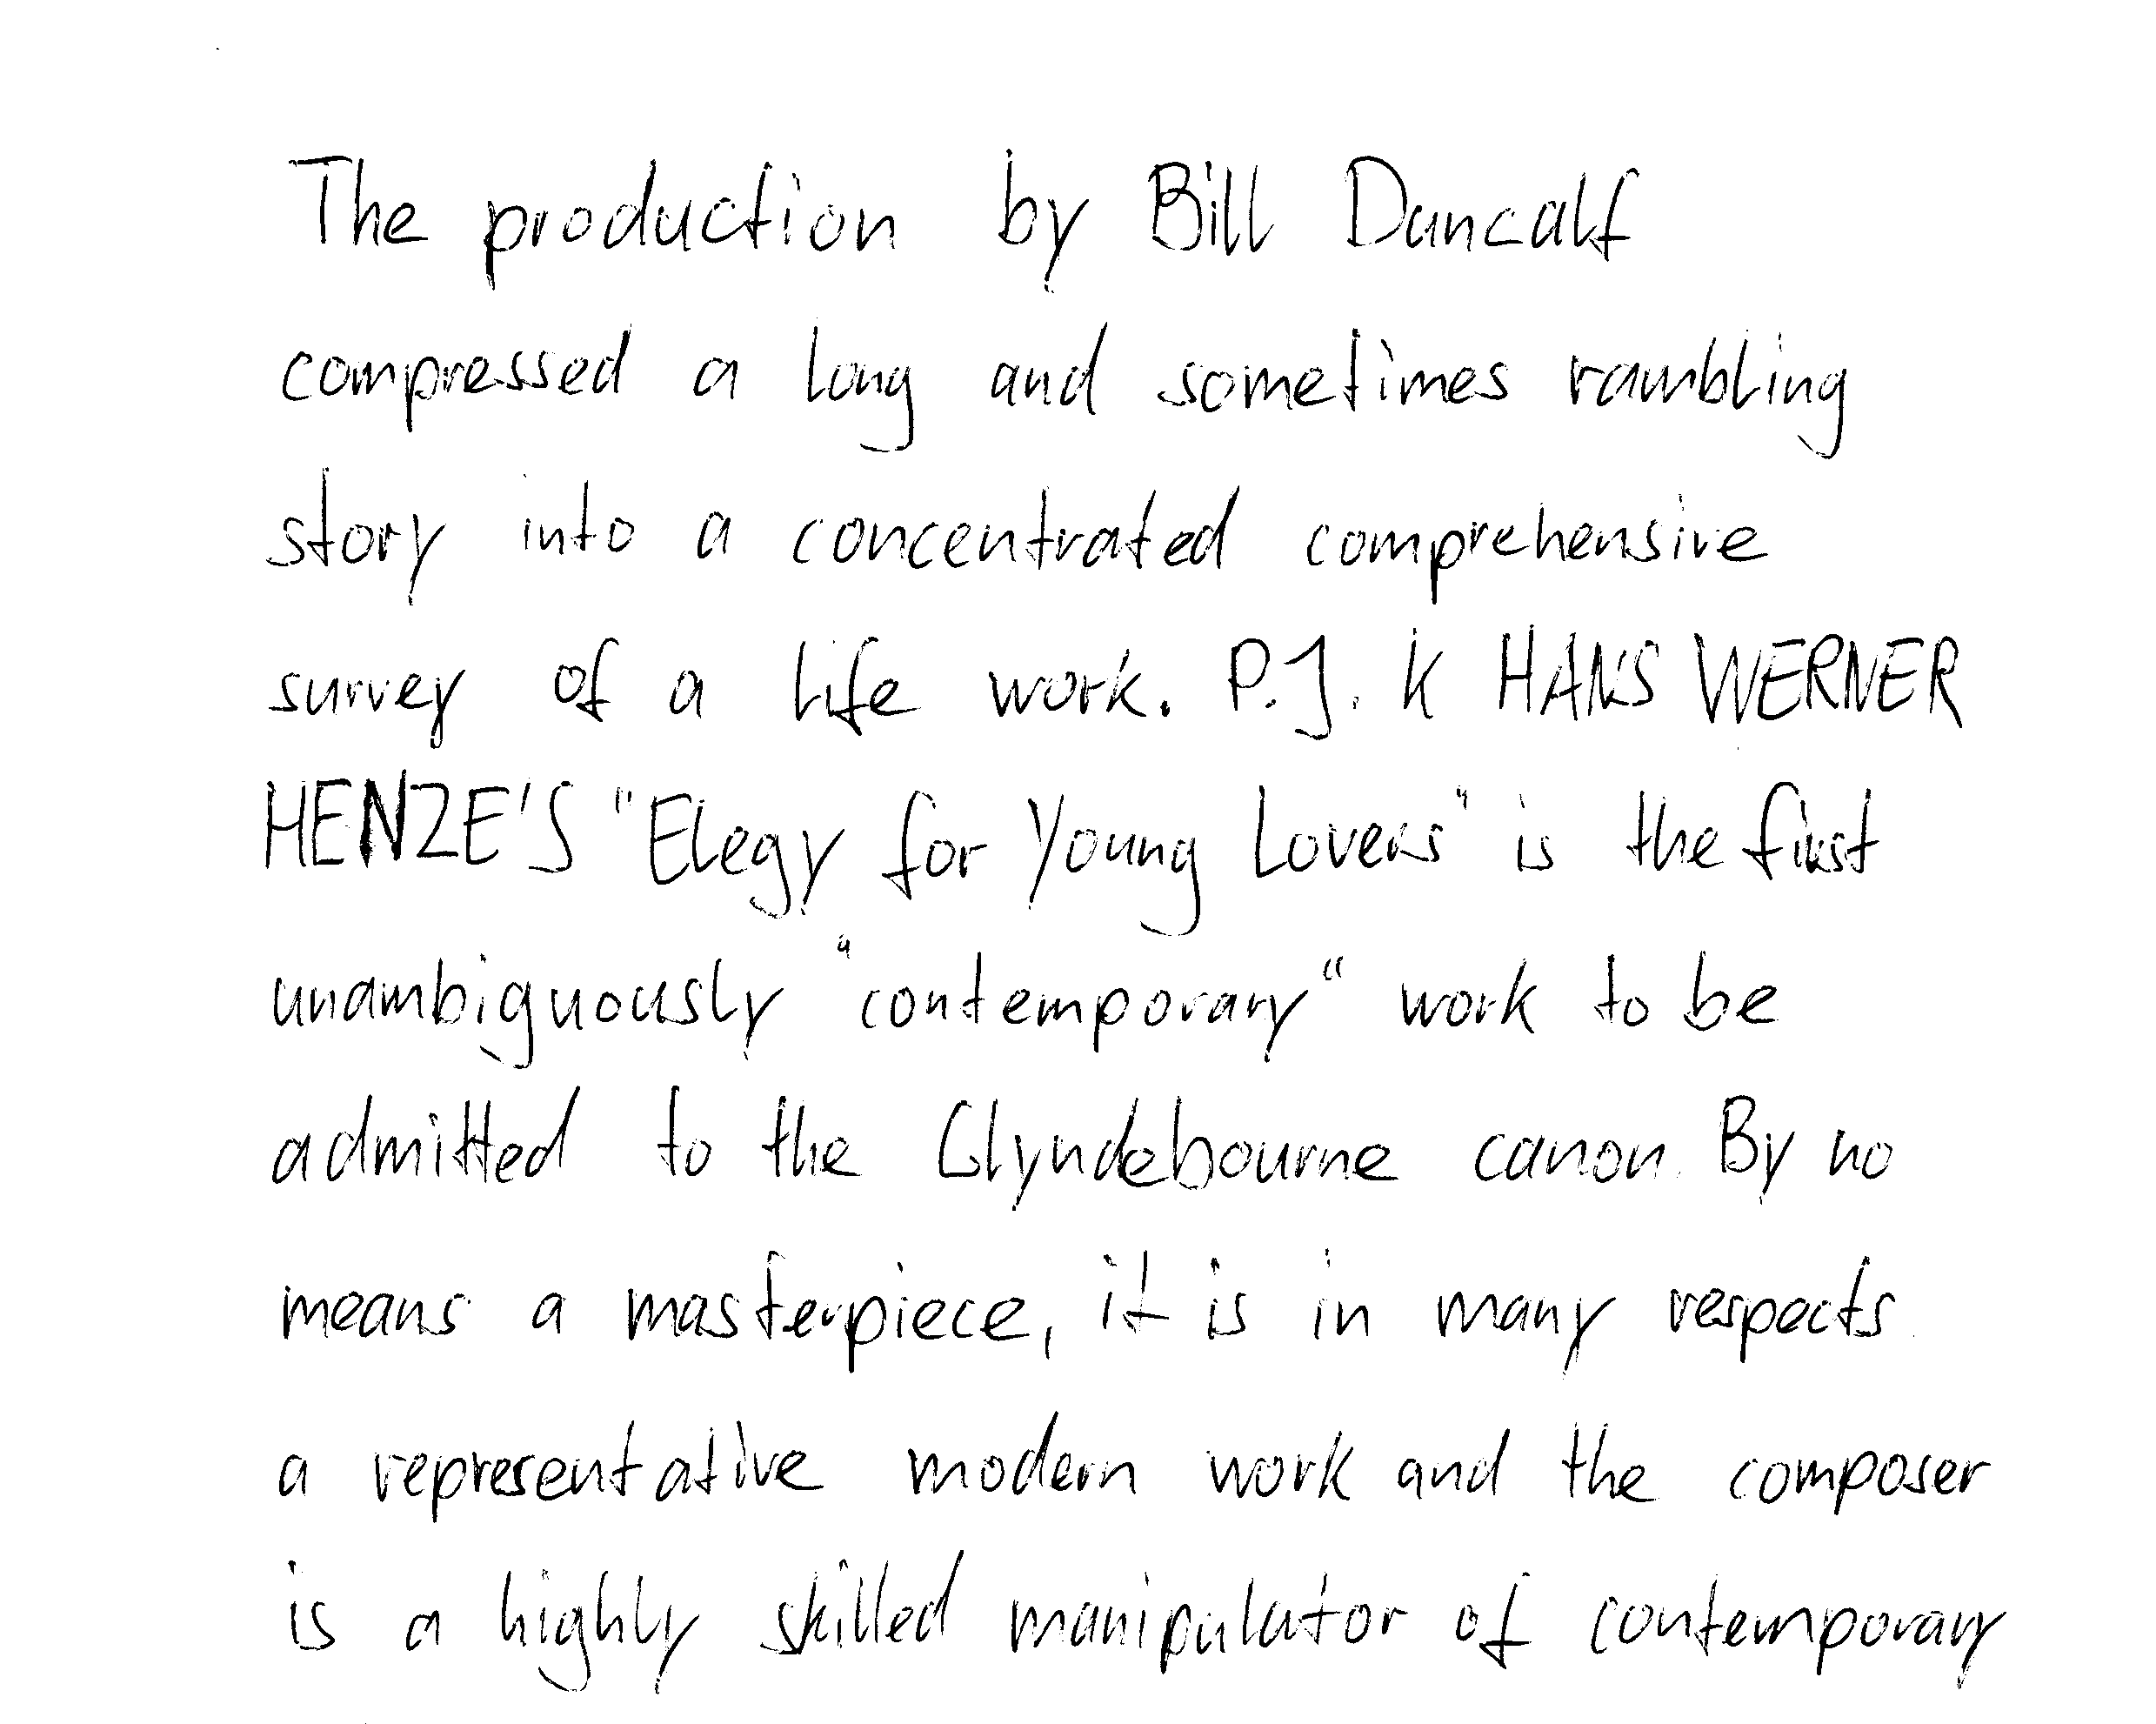 The production by Bill Duncalf
compressed a long and sometimes rambling
story into a concentrated comprehensive
survey of a life work. P.J. K HANS WERNER
HENZE'S "Elegy for Young Lovers" is the first
unambiguously "contemporary" work to be
admitted to the Glyndebourne canon. By no
means a masterpiece, it is in many respects
a representative modern work and the composer
is a highly skilled manipulator of contemporary